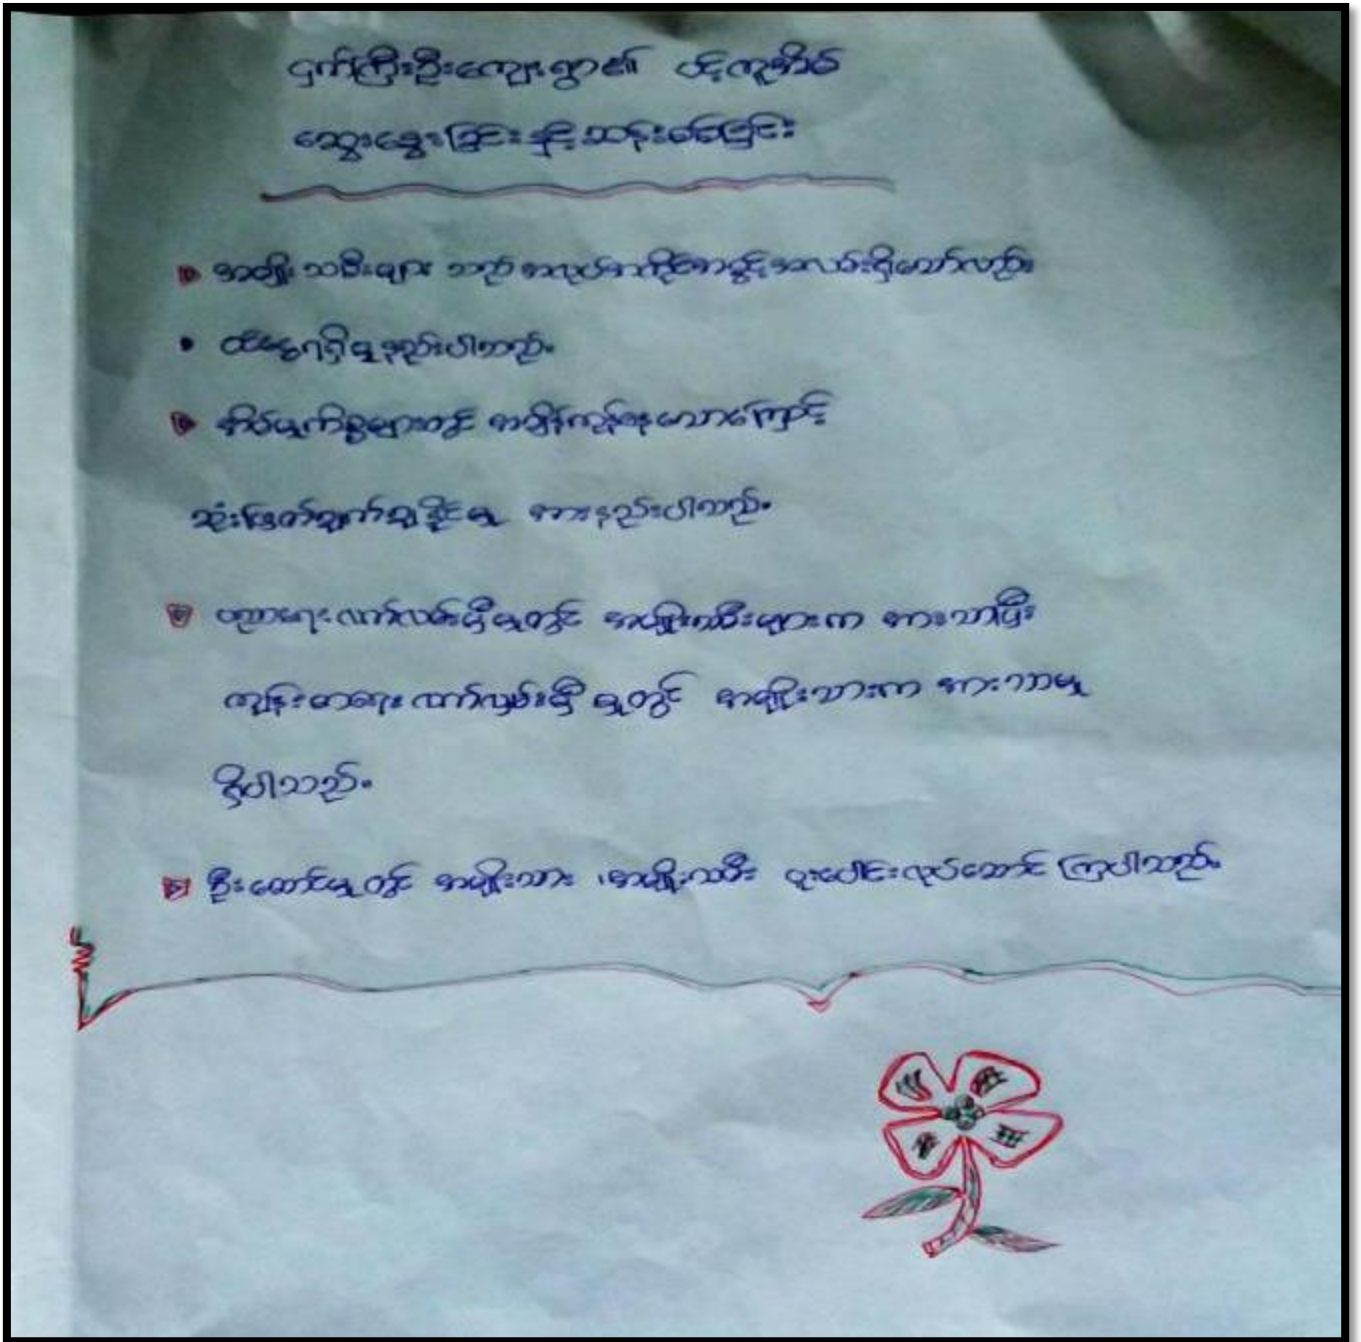 ငှက်ကြီးဦးကျေးရွာ၏ ပင့်ကူအိမ်
ဆွေးနွေးခြင်းနှင့်ဆန်းစစ်ခြင်း
အမျိုးသမီးများ သည် အလုပ်အကိုင်အခွင့်အလမ်းရှိသော်လည်း
ထိုင်ငွေရရှိမှုနည်းပါသည်။
အိမ်မှုကိစ္စများတွင် အချိန်ကုန်နေသောကြောင့်
ဆုံးဖြတ်ချက်ချနိုင်မှု အားနည်းပါသည်။
ပညာရေးလက်လှမ်းမှီမှုတွင် အမျိုးသမီးများက အားသာပြီး
ကျန်းမာရေး လက်လှမ်းမှီ မှုတွင် အမျိုးသားက အားသာမှု
ရှိပါသည်။
ဦးဆောင်မှုတွင် အမျိုးသား ၊အမျိုးသမီး ပူးပေါင်းလုပ်ဆောင် ကြပါသည်။